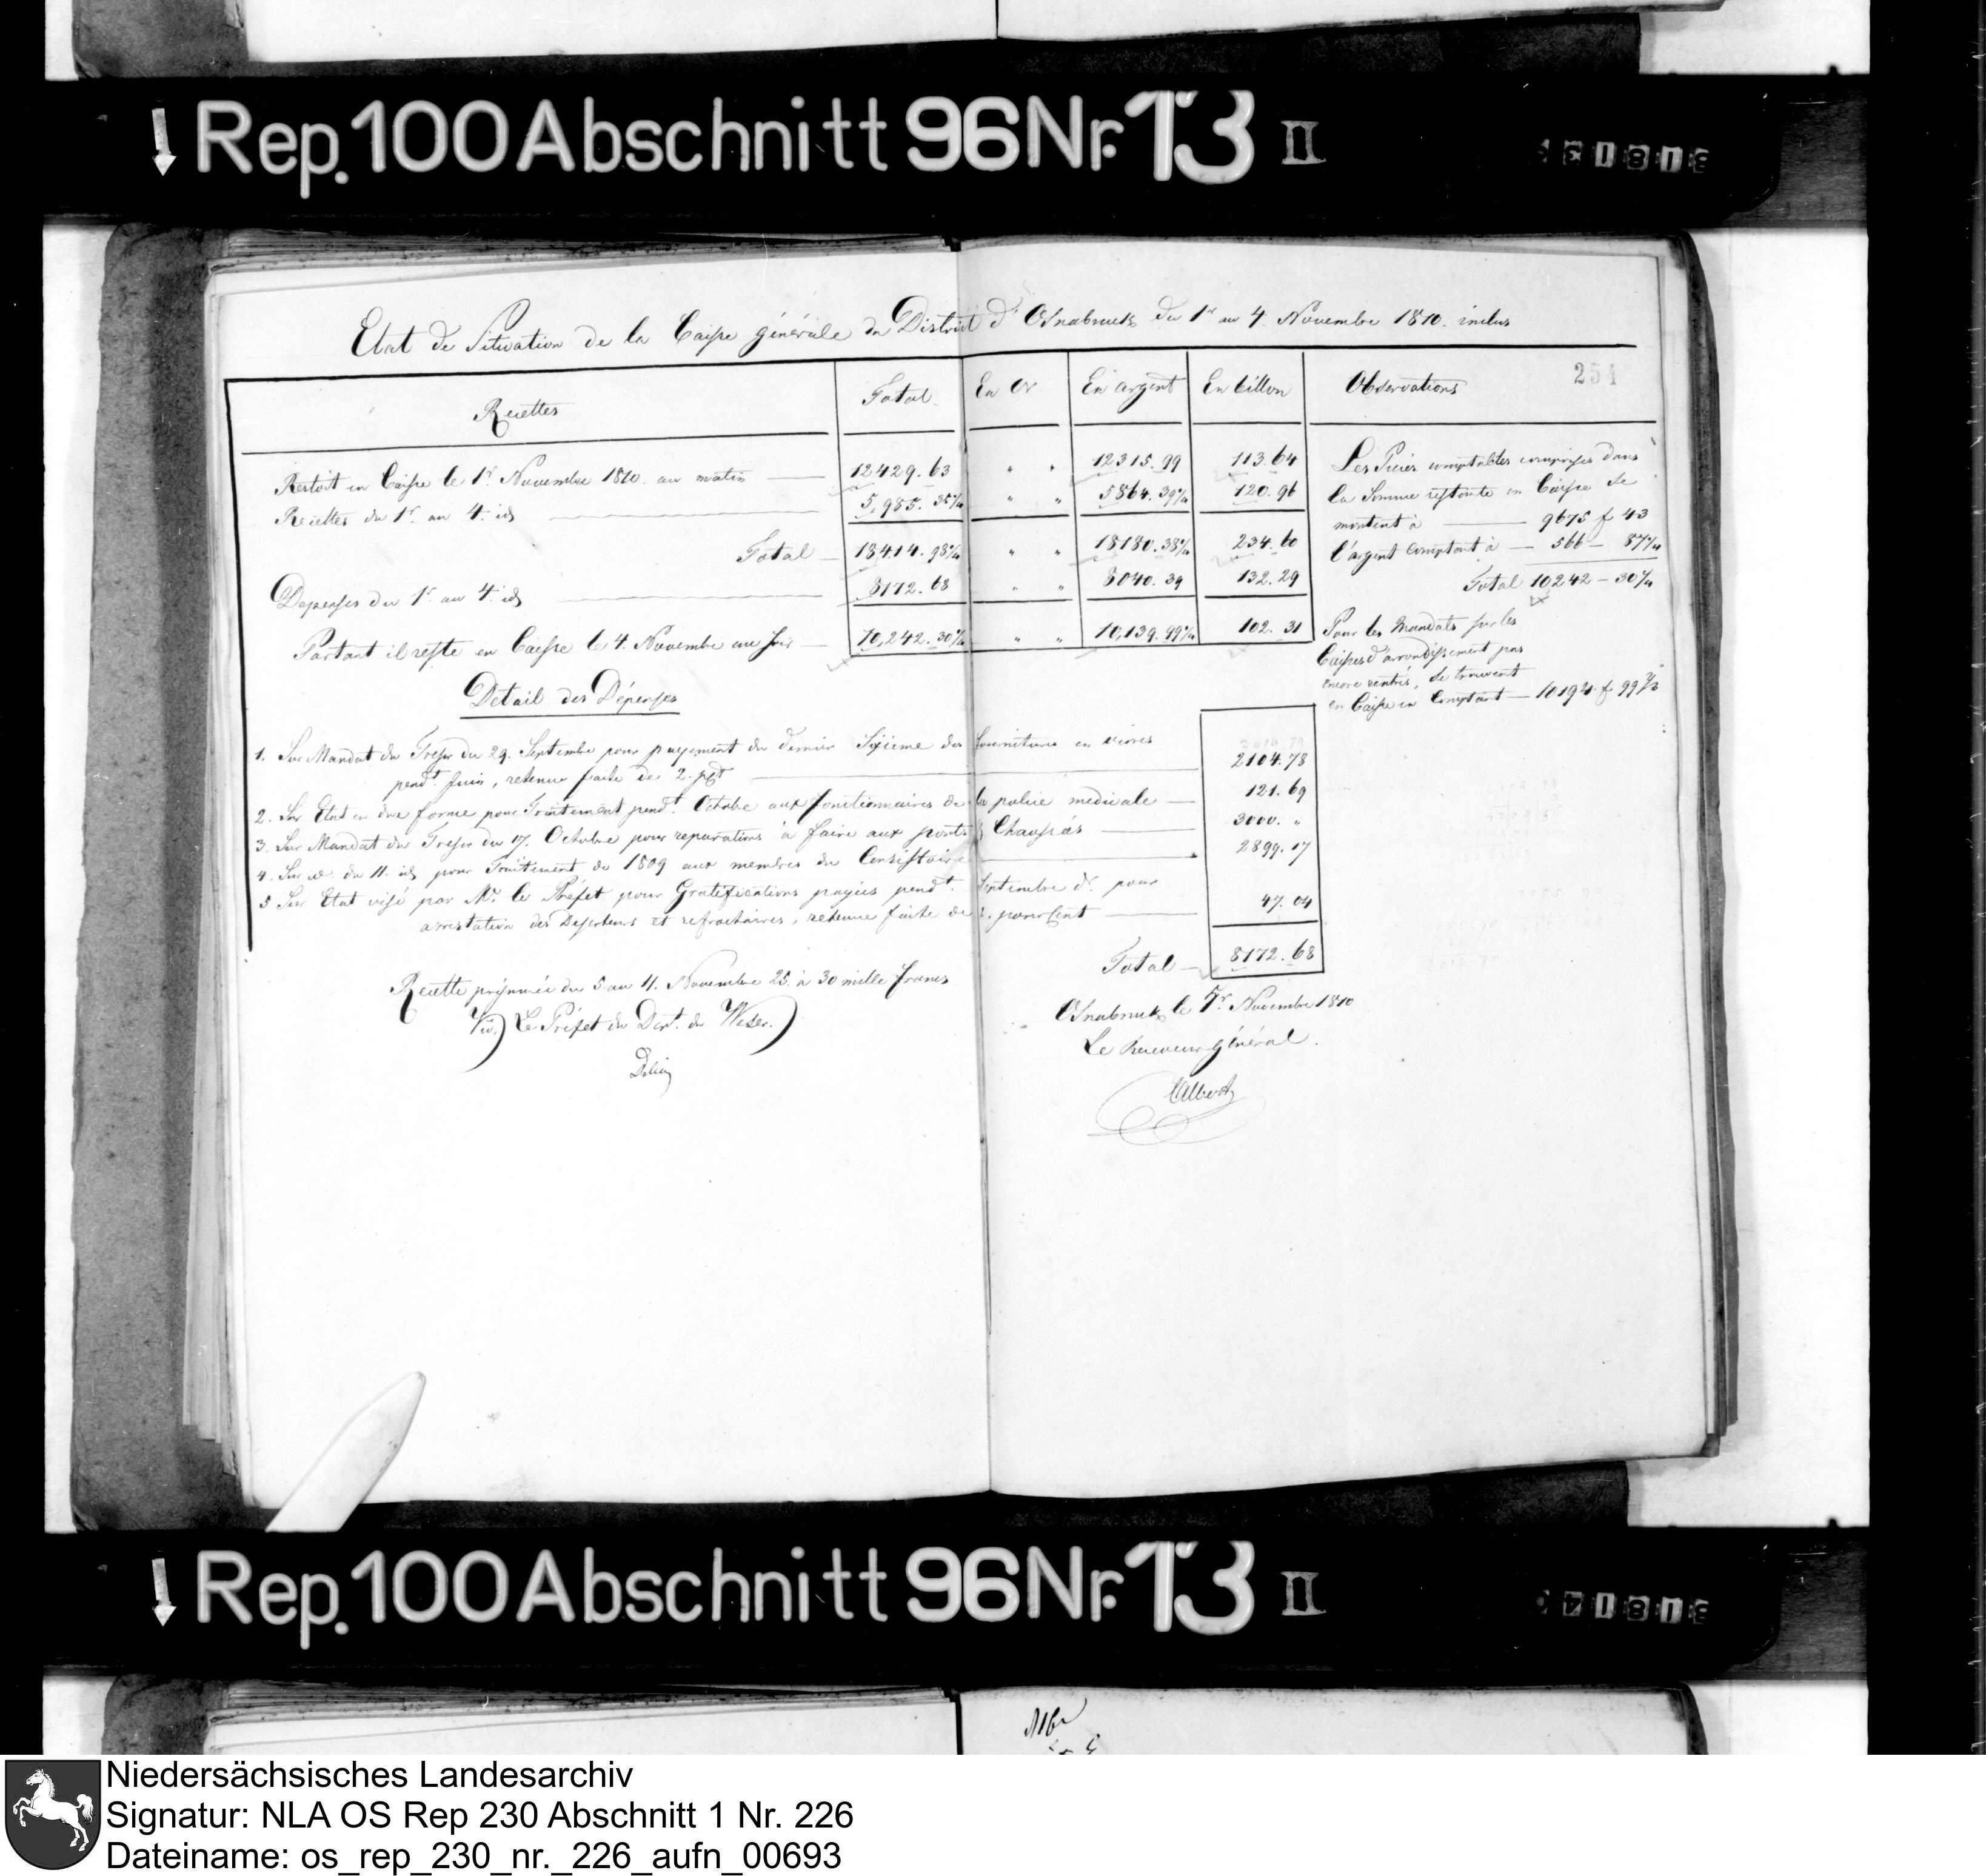 Rep. 100 Abschnitt 96 Nr. 13 II
Etat de Situation de la Caisse générale du District d'Osnabruck du 1r au 4. Novembre 1810. inclus
254
Recettes Total En Or En argent En billon Observations
Restoit en Caisse le 1r Novembre 1810. au matin 12429. 63 " " 12315. 99 113. 64
Recettes du 1r au 4. id 5,985. 35 5864. 39 120. 96
Total 18414. 98 " " 18180. 38 234. 60
Depenses du 1r au 4. id 8172. 68 " " 8040. 39 132. 29
Partant il reste en Caisse le 4. Novembre au soir 10,242. 30 " " 10,139. 99 102. 31
Les Pièces comptables comprises dans
la Somme restante en Caisse se
montent à 9675 f 43
l'argent comptant à 566 - 87
Total 10242 - 30
Pour les Mandats sur les
Caisses d'arrondissement pas
encore rentrés, se trouvent
en Caisse en Comptant
Detail des Dépenses
1. Sur Mandat du Tresor du 29. Septembre pour payement du dernier Sixieme des fournitures en vivres
pendt Juin, retenue faite de 2. pCt 2104. 78
2. Sur Etat en due forme pour Traitement pendt Octobre aux fonctionnaires de la police medicale 121. 69
3. Sur Mandat du Tresor du 17. Octobre pour reparations à faire aux ponts & Chaussées 3000. "
4. Sur do du 11. id pour Traitement de 1809 aux membres du Consistoire 2899. 17
5 Sur Etat visé par Mr. le Préfet pour Gratifications payées pendt. Septembre dr. pour
arrestation des Deserteurs et refractaires, retenue faite de 2. pour Cent 47. 04
Total 8172. 68
Recette présumée du 5 au 11. Novembre 25. à 30 mille francs
Vid.) Le Préfet du Dept. du Weser.)
Osnabruck le 5r Novembre 1810
Le Receveur général.
Rep. 100 Abschnitt 96 Nr. 13 II
Niedersächsisches Landesarchiv
Signatur: NLA OS Rep 230 Abschnitt 1 Nr. 226
Dateiname: os_rep_230_nr._226_aufn_00693